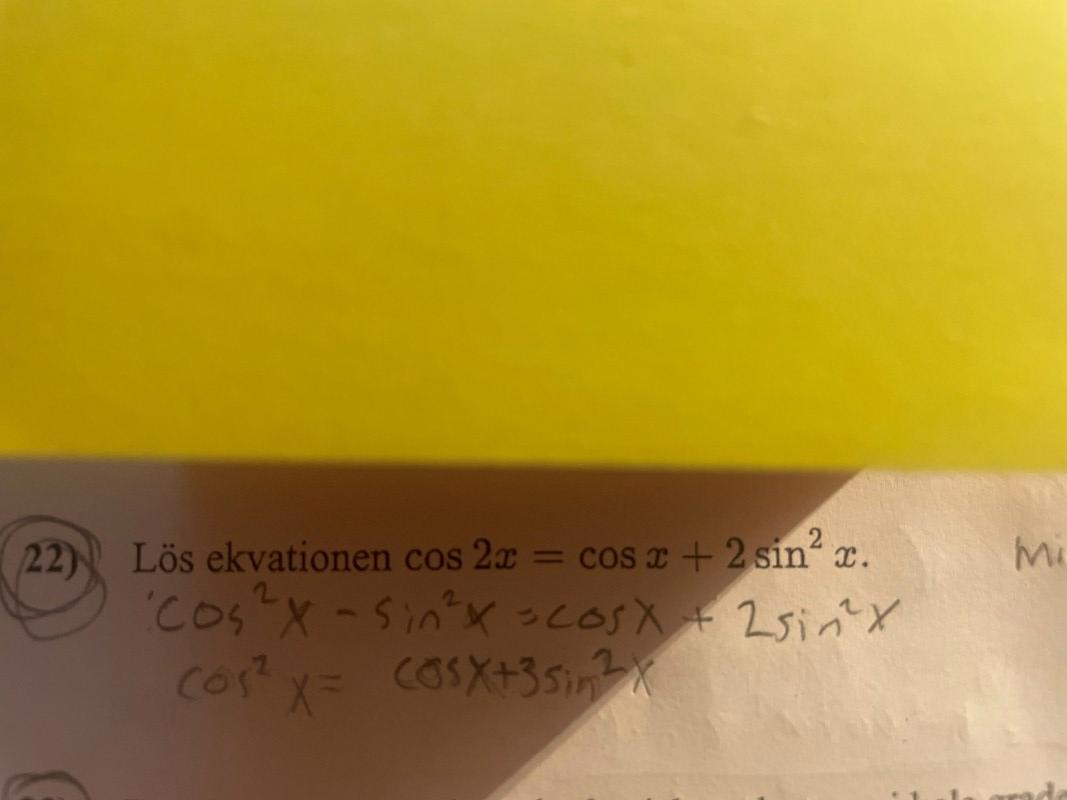 22) Lös ekvationen cos 2x = cos x + 2 sin² x.
cos²x - sin²x = cosx + 2sin²x
cos² x = cosx+3sin²x